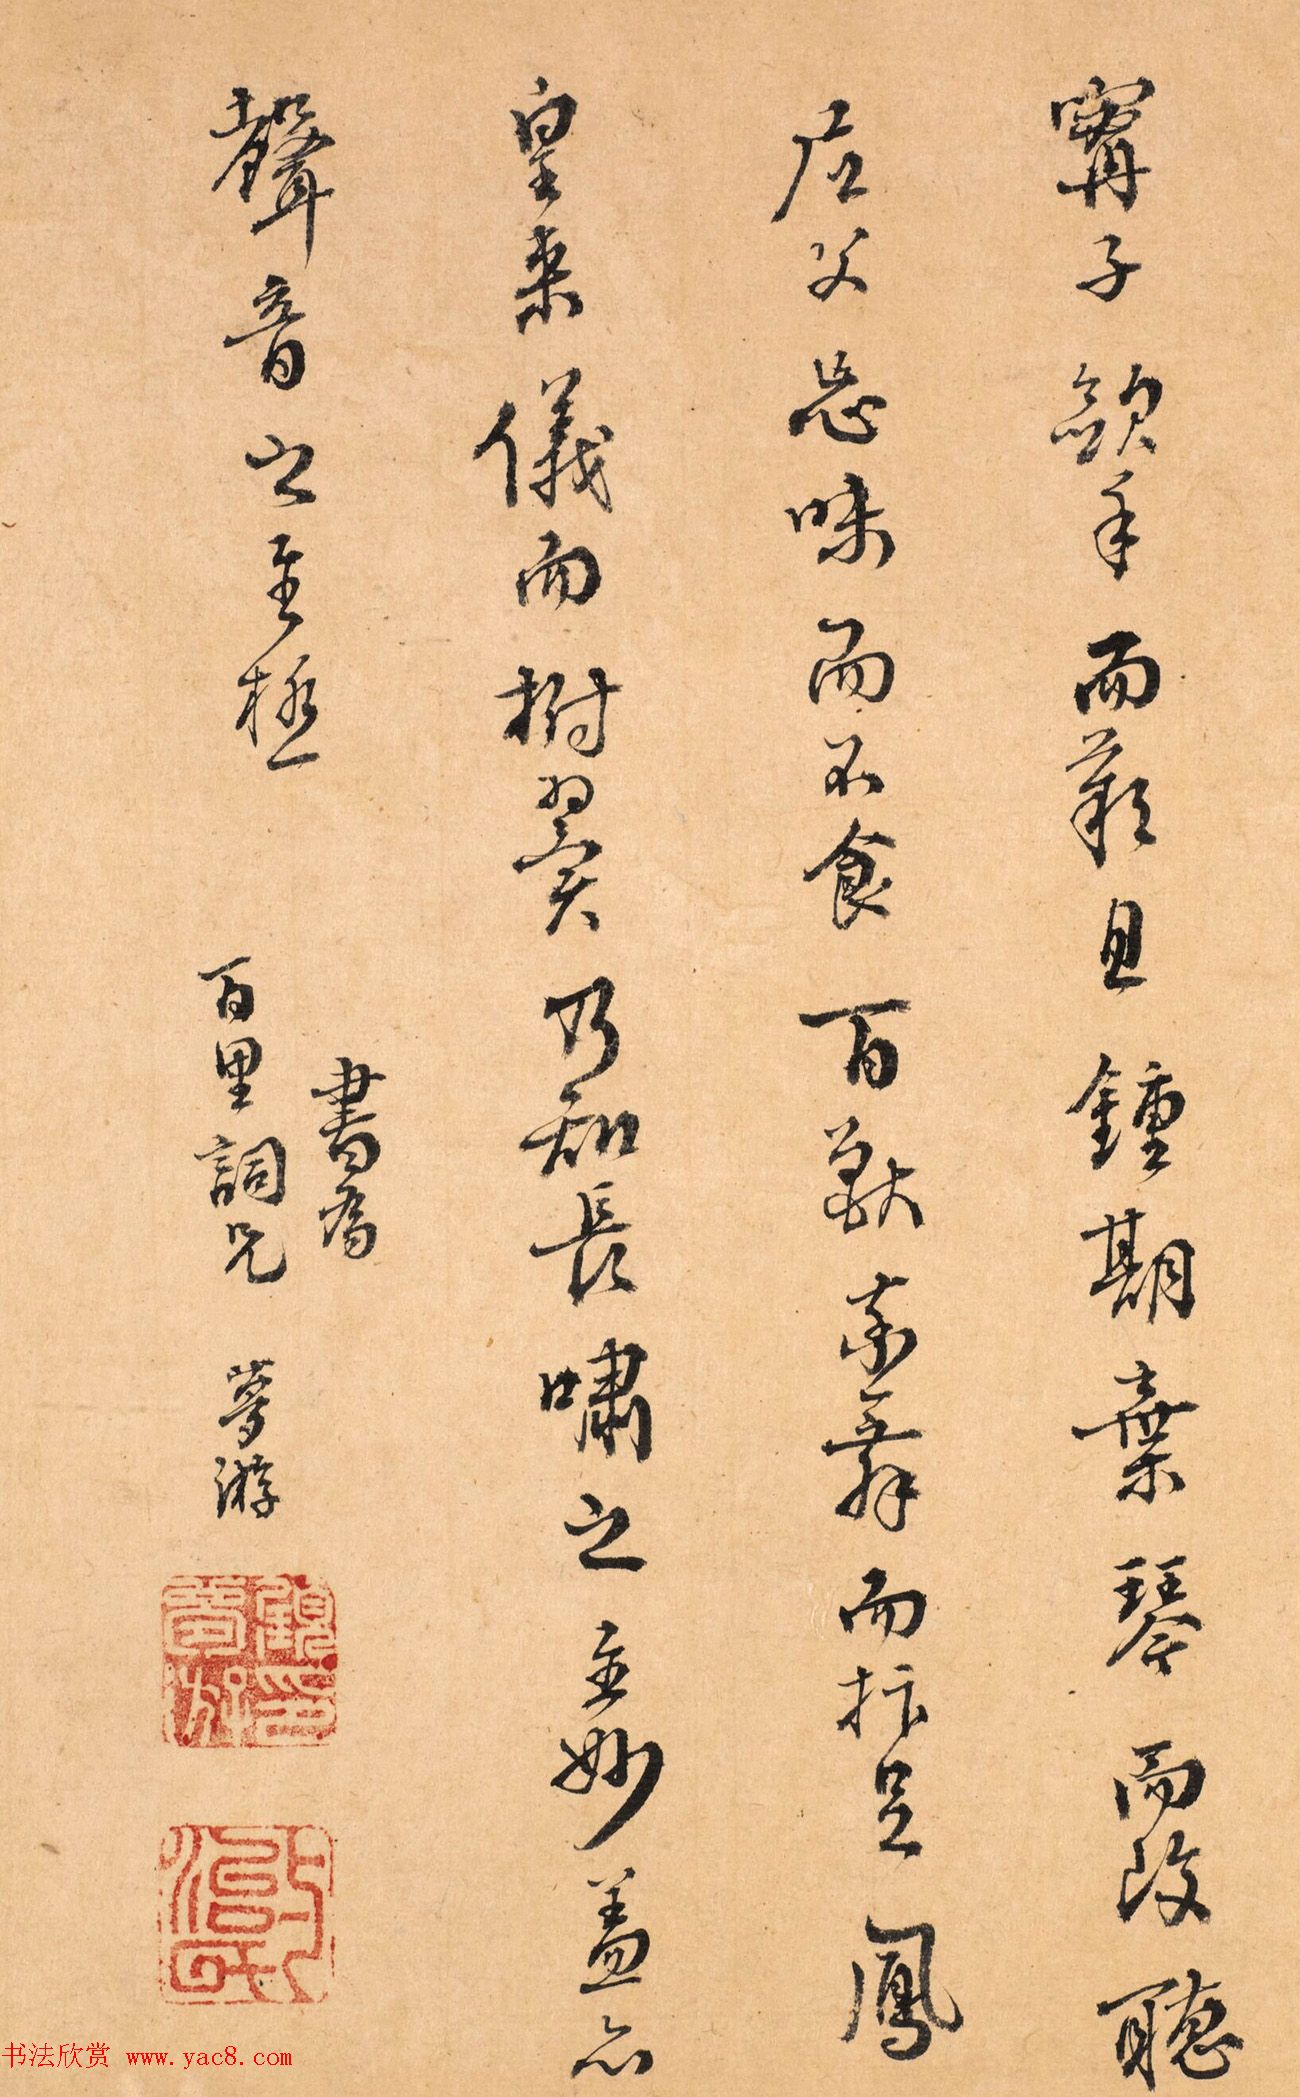 甯子歛手而歎息鍾期棄琴而改聽
尼父忘味而不食百獸率舞而抃足鳳
皇来儀而拊翼乃知長嘯之至妙盖亦
聲音之至極
書為
百里詞兄 夢游
顧夢游印
书法欣赏 www.yac8.com